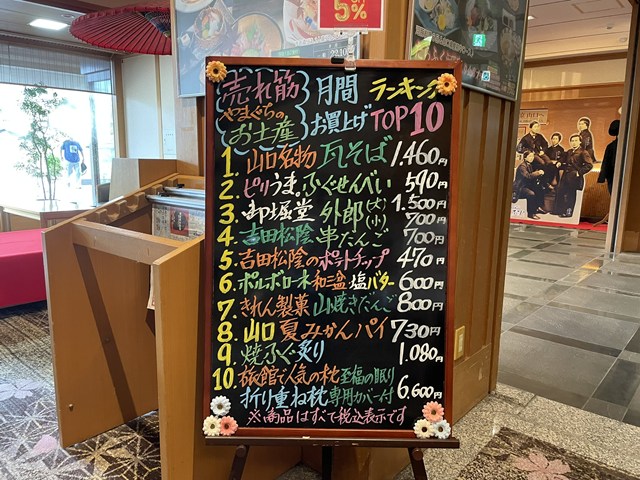 5%
売れ筋
やまぐちの
お土産
月間 ランキング
お買上げ TOP10
1. 山口名物 瓦そば 1.460円
2. ピリうま。ふぐせんべい 590円
3. 御堀堂 外郎 (大) 1.500円
(小) 700円
4. 吉田松陰 串だんご 700円
5. 吉田松陰のポテトチップ 470円
6. ポルボローネ 和三盆 塩バター 600円
7. きれん製菓 山焼きだんご 800円
8. 山口 夏みかんパイ 730円
9. 焼ふぐ炙り 1.080円
10. 旅館で人気の枕 至福の眠り
折り重ね枕 専用カバー付 6.600円
※商品はすべて税込表示です